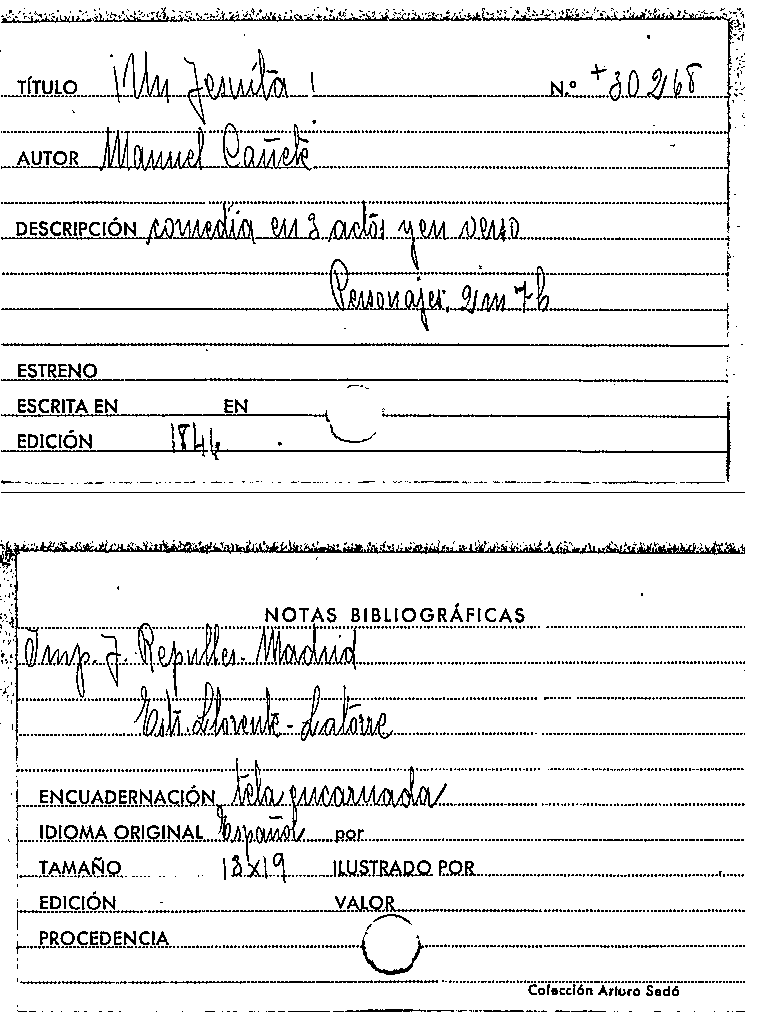 TÍTULO ¡Un Jesuita! N.º +30268
AUTOR Manuel Cañete
DESCRIPCIÓN comedia en 3 actos y en verso
Personajes, 2m 7h
ESTRENO
ESCRITA EN EN
EDICIÓN 1846
NOTAS BIBLIOGRÁFICAS
Imp. J. Repulles. Madrid
Estr. Llorente - Latorre
ENCUADERNACIÓN tela encarnada
IDIOMA ORIGINAL Español por
TAMAÑO 13x19 ILUSTRADO POR
EDICIÓN VALOR
PROCEDENCIA
Colección Arturo Sedó